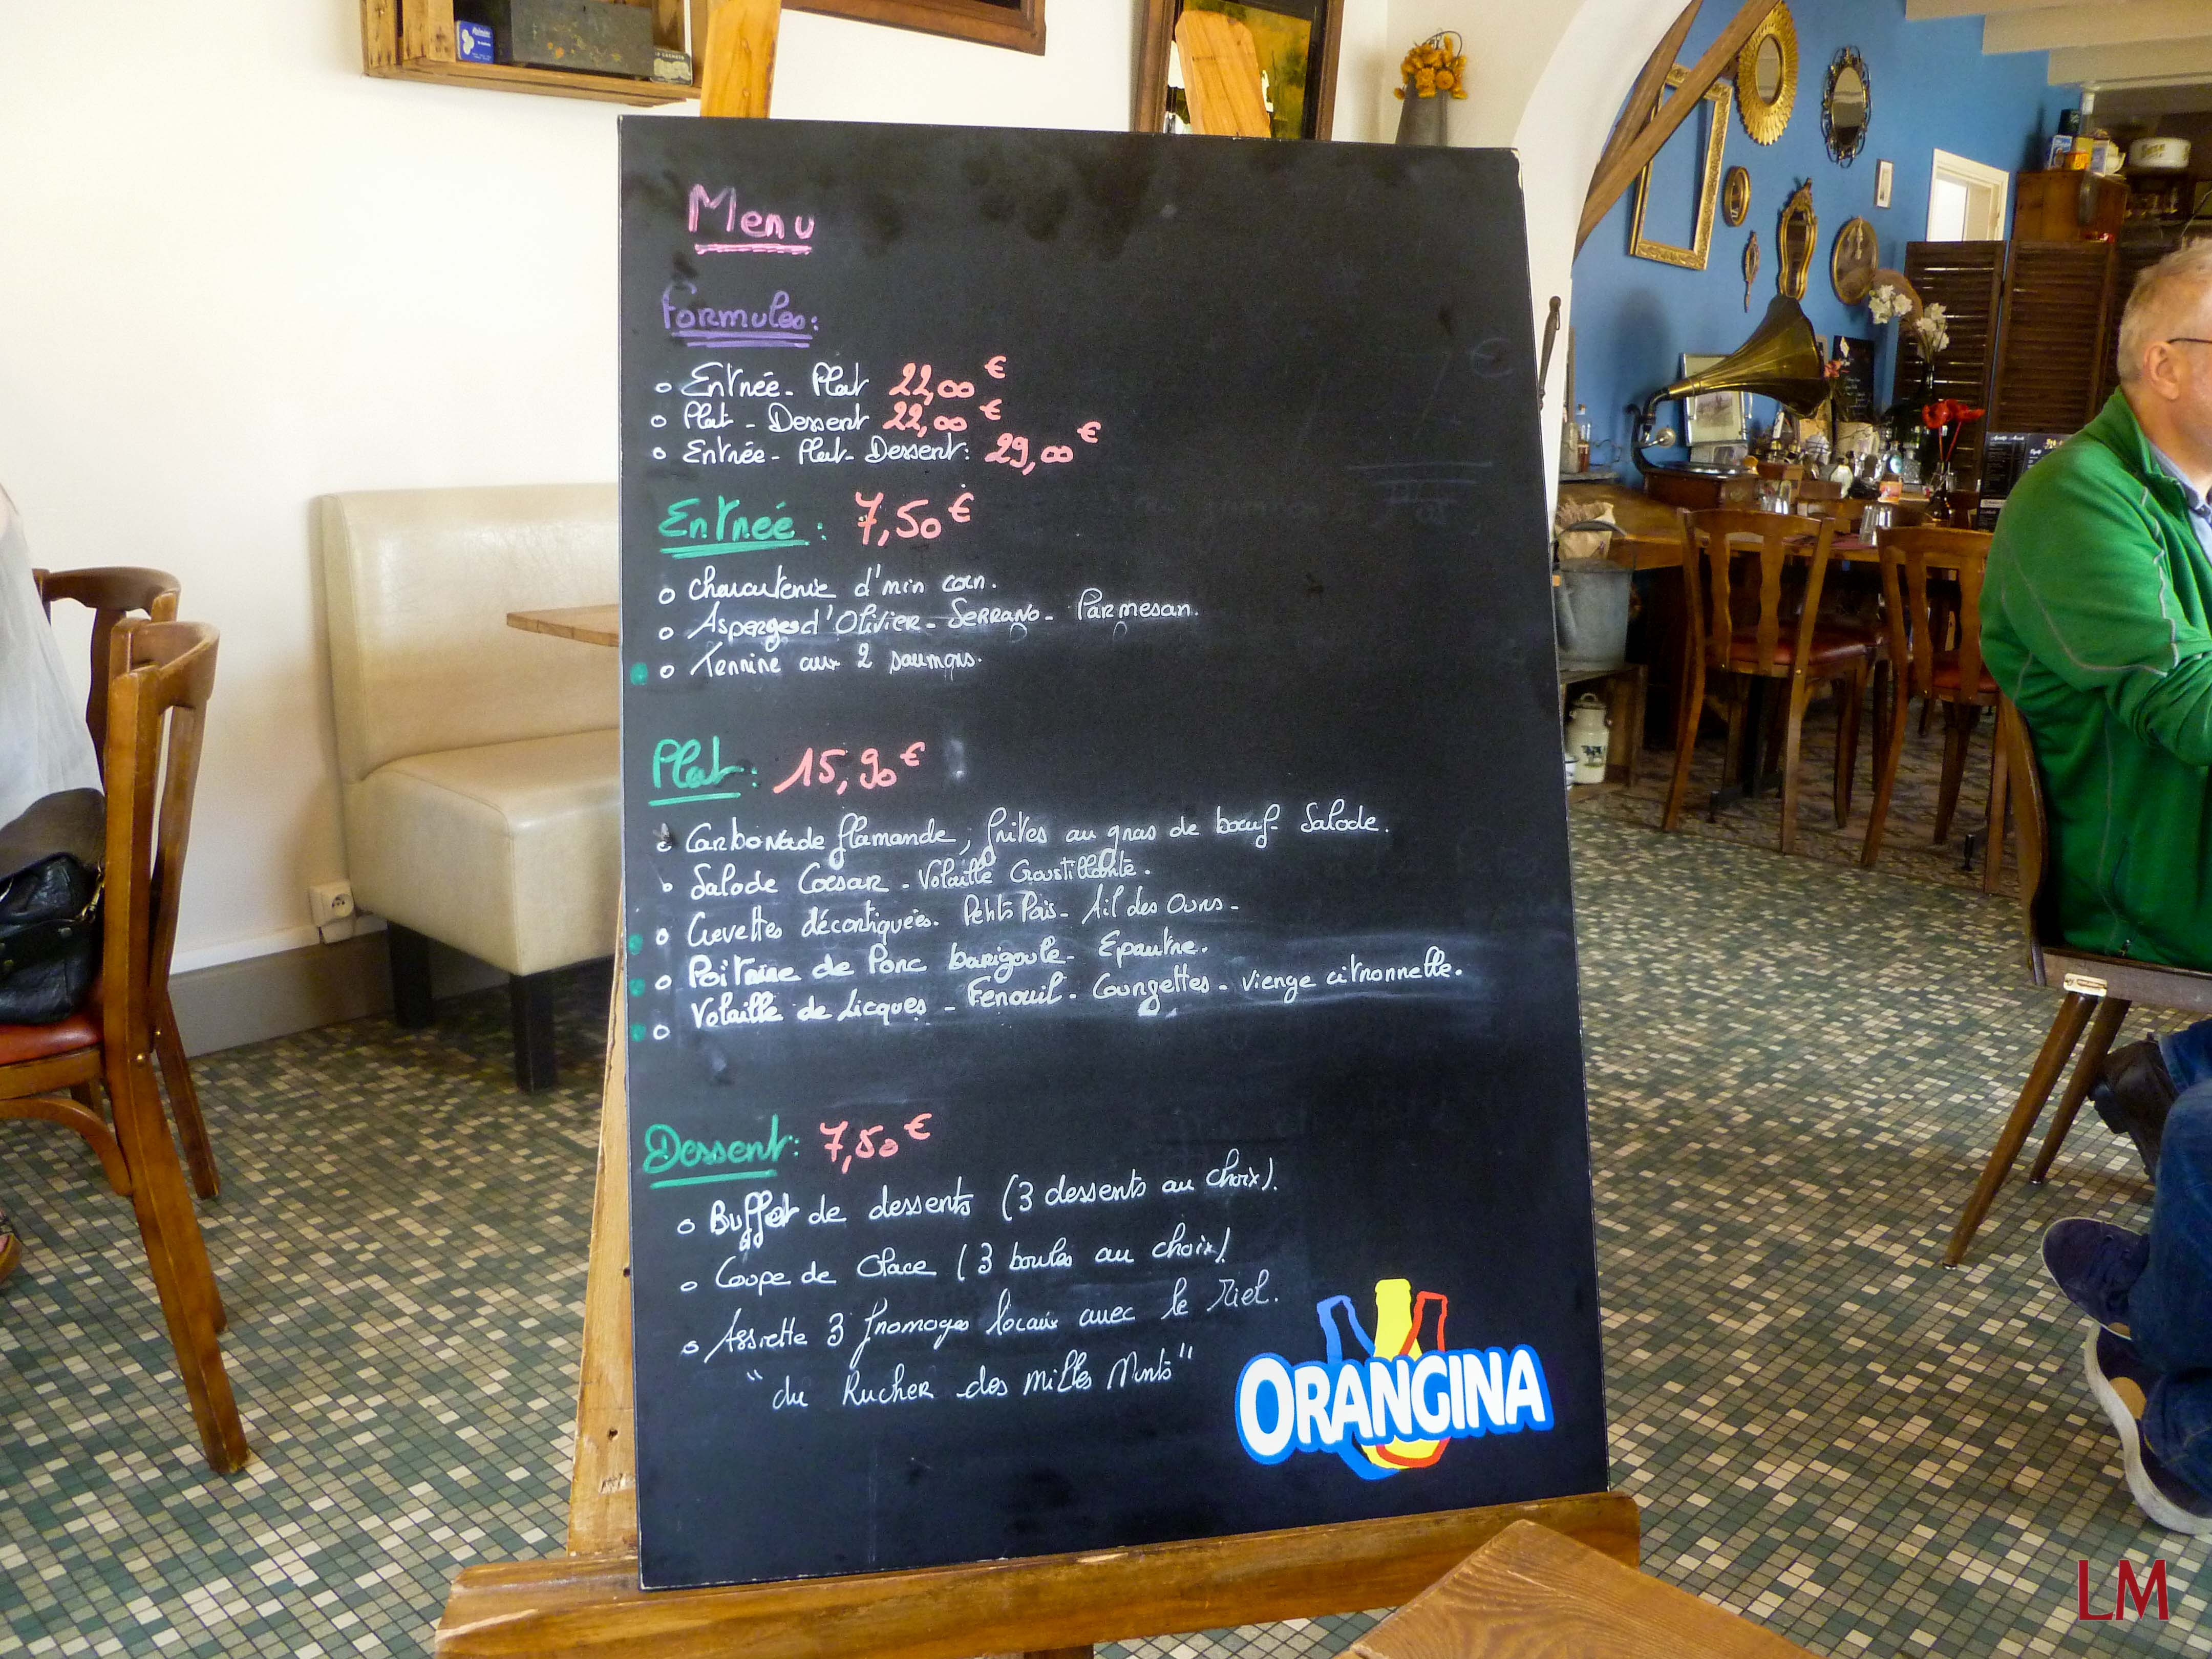 Menu
Formules:
Entrée - Plat 22,00 €
Plat - Dessert 22,00 €
Entrée - Plat - Dessert: 29,00 €
Entrée : 7,50 €
Charcuterie d'min coin.
Asperges d'Olivier - Serrano - Parmesan.
Terrine aux 2 saumons.
Plat : 15,90 €
Carbonade flamande, frites au gras de bœuf - Salade.
Salade Coesar - Volaille Croustillante.
Crevettes décortiquées. Petits Pois - Ail des Ours -
Poitrine de Porc barigoule - Epautre.
Volaille de Licques - Fenouil - Courgettes - Vierge citronnelle.
Dessert : 7,50 €
Buffet de desserts (3 desserts au choix).
Coupe de Glace (3 boules au choix)
Assiette 3 fromages locaux avec le Miel.
"du Rucher des milles Monts"
ORANGINA
LM